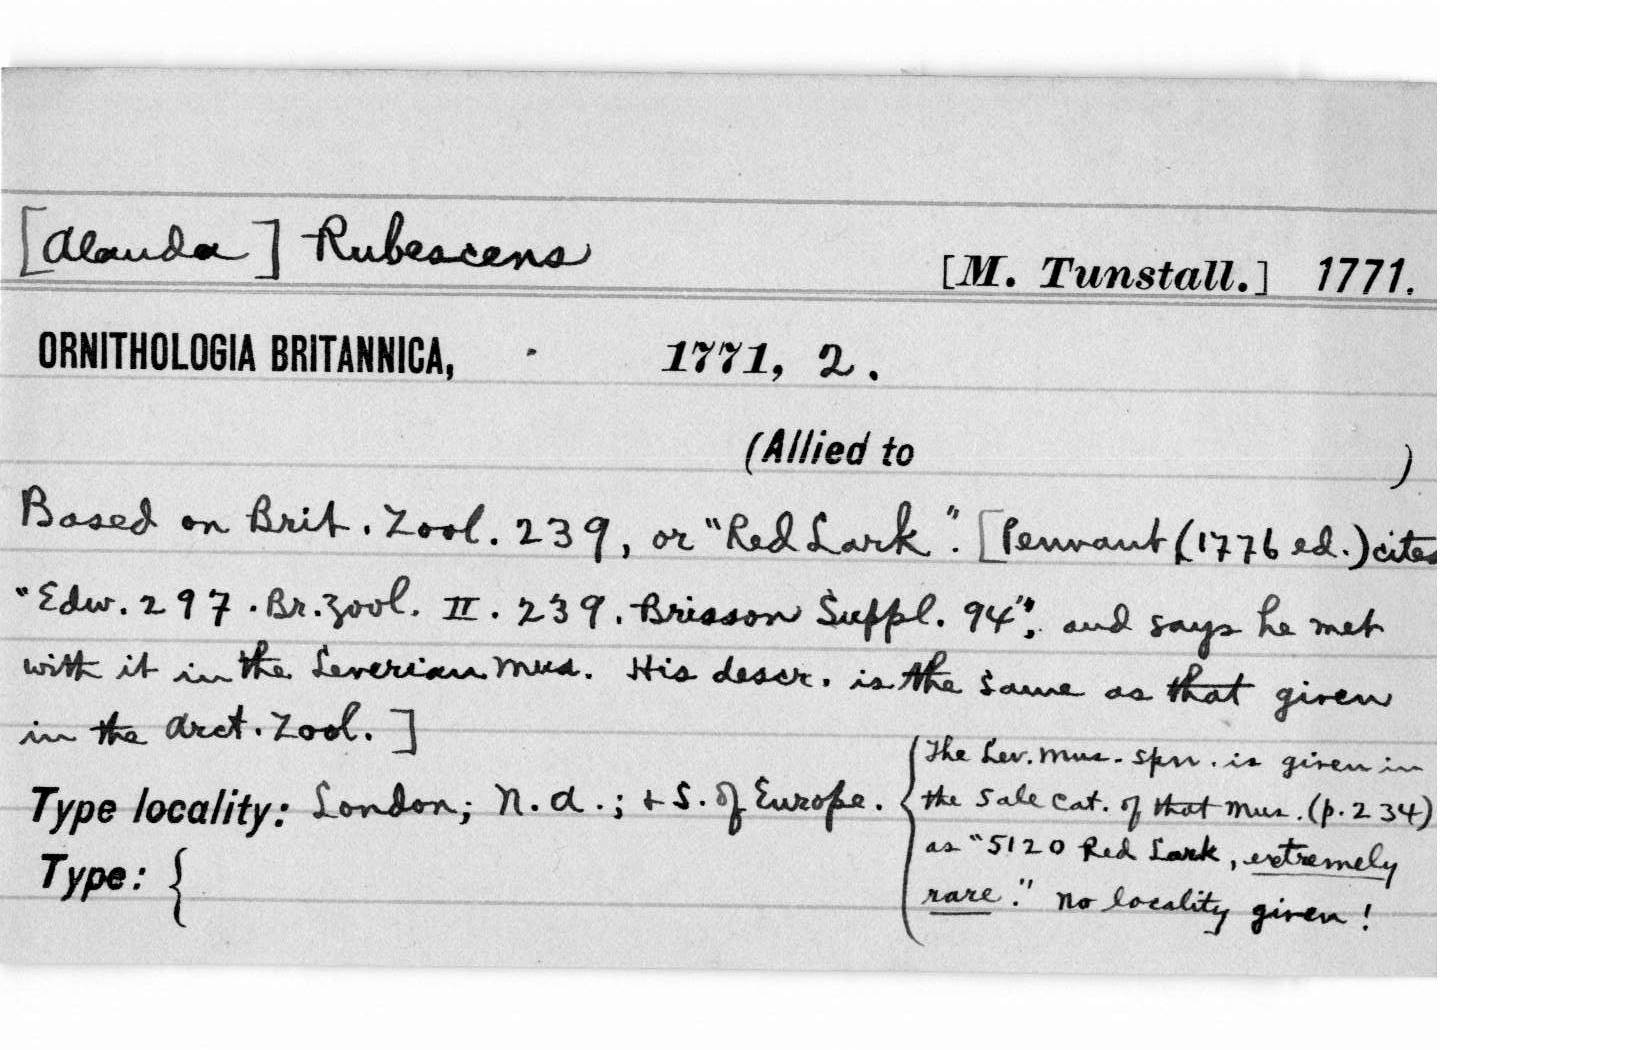 [Alauda] Rubescens
[M. Tunstall.] 1771.
ORNITHOLOGIA BRITANNICA, 1771, 2.
(Allied to )
Based on Brit. Zool. 239, or "Red Lark". [Pennant (1776 ed.) cites
"Edw. 297. Br. Zool. II. 239. Brisson Suppl. 94", and says he met
with it in the Leverian Mus. His descr. is the same as that given
in the Arct. Zool.]
Type locality: London; N. A.; + S. of Europe.
Type: {
{The Lev. Mus. spn. is given in
the Sale Cat. of that Mus. (p. 234)
as "5120 Red Lark, extremely
rare." No locality given!